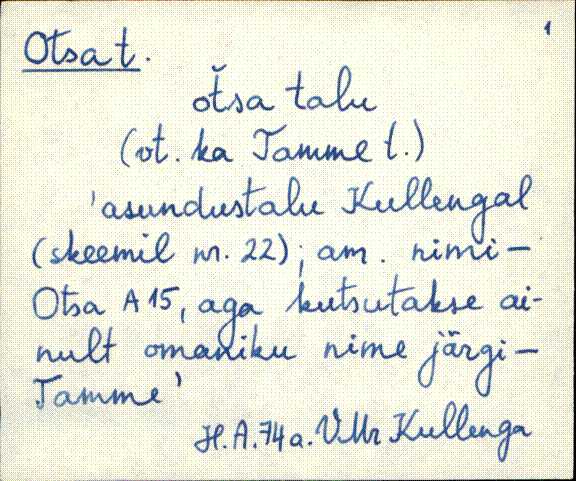 1
Otsa t.
ŏtsa talu
(vt. ka Tamme t.)
'asundustalu Kullengal
(skeemil nr. 22); am. nimi-
Otsa A 15, aga kutsutakse ai-
nult omaniku nime järgi-
Tamme'
H.A. 74 a. VMr Kullenga